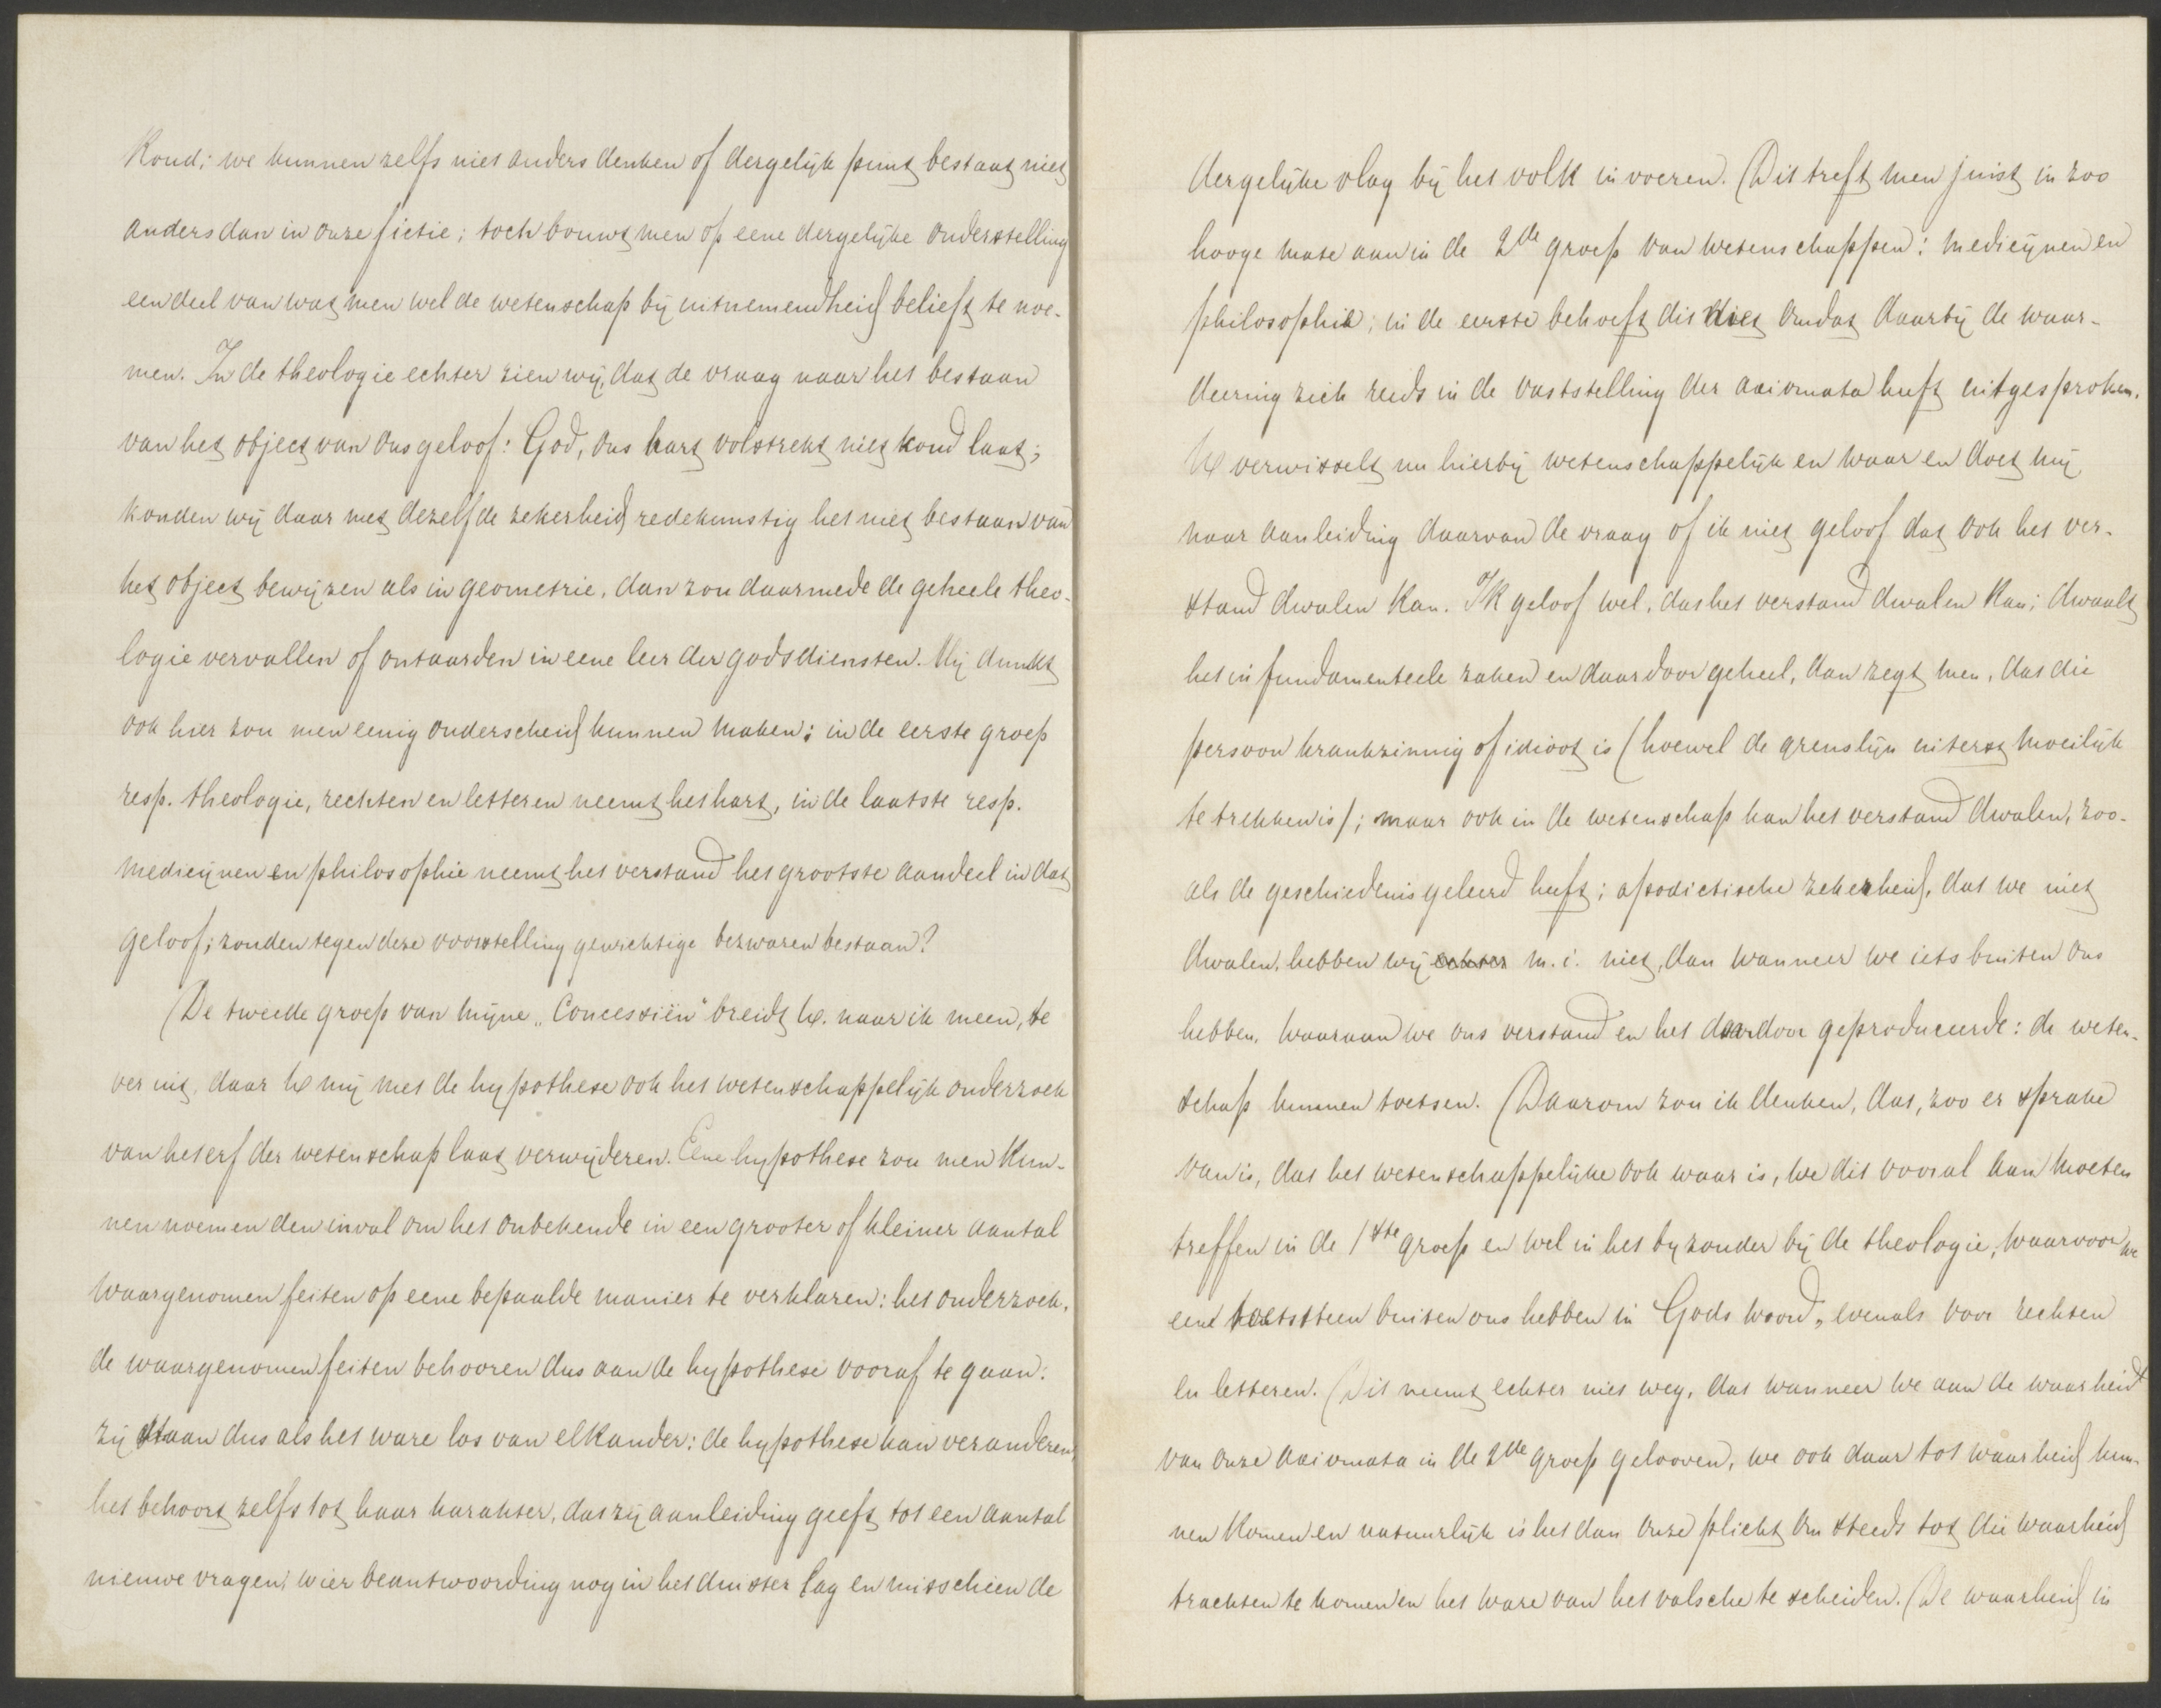 koud; we kunnen zelfs niet anders denken of dergelijk punt bestaat niet
anders dan in onze fictie; toch bouwt men op eene dergelijke onderstelling
een deel van wat men wel de wetenschap bij uitnemendheid belieft te noe-
men. In de theologie echter zien wij, dat de vraag naar het bestaan
van het object van ons geloof: God, ons hart volstrekt niet koud laat;
konden wij daar met dezelfde zekerheid redekunstig het niet bestaan van
het object bewijzen als in geometrie, dan zou daarmede de geheele theo-
logie vervallen of ontaarden in eene leer der godsdiensten. Mij dunkt
ook hier zou men eenig onderscheid kunnen maken; in de eerste groep
resp. theologie, rechten en letteren neemt het hart, in de laatste resp.
medicijnen en philosophie neemt het verstand het grootste aandeel in dat
geloof; zouden tegen deze voorstelling gewichtige bezwaren bestaan?
De tweede groep van mijne „Concessiën" breidt U. naar ik meen, te
ver uit, daar U mij met de hypothese ook het wetenschappelijk onderzoek
van het erf der wetenschap laat verwijderen. Eene hypothese zou men kun-
nen noemen den inval om het onbekende in een grooter of kleiner aantal
waargenomen feiten op eene bepaalde manier te verklaren: het onderzoek,
de waargenomen feiten behooren dus aan de hypothese vooraf te gaan:
zij staan dus als het ware los van elkander: de hypothese kan veranderen,
het behoort zelfs tot haar karakter, dat zij aanleiding geeft tot een aantal
nieuwe vragen, wier beantwoording nog in het duister lag en misschien de
dergelijke vlag bij het volk invoeren. Dit treft men juist in zoo
hooge mate aan in de 2de groep van wetenschappen: medicijnen en
philosophie; in de eerste behoeft dit niet omdat daarbij de waar-
deering zich reeds in de vaststelling der axiomata heeft uitgesproken.
U verwisselt nu hierbij wetenschappelijk en waar en doet mij
naar aanleiding daarvan de vraag of ik niet geloof dat ook het ver-
stand dwalen kan. Ik geloof wel, dat het verstand dwalen kan; dwaalt
het in fundamenteele zaken en daardoor geheel, dan zegt men, dat die
persoon krankzinnig of idioot is (hoewel de grenslijn uiterst moeilijk
te trekken is); maar ook in de wetenschap kan het verstand dwalen, zoo-
als de geschiedenis geleerd heeft; apodictische zekerheid, dat we niet
dwalen, hebben wij echter m.i. niet, dan wanneer we iets buiten ons
hebben, waaraan we ons verstand en het daardoor geproduceerde: de weten-
schap kunnen toetsen. Daarom zou ik denken, dat, zoo er sprake
van is, dat het wetenschappelijke ook waar is, we dit vooral aan moeten
treffen in de 1ste groep en wel in het byzonder bij de theologie, waarvoor we
een toetssteen buiten ons hebben in Gods woord, evenals voor rechten
en letteren. Dit neemt echter niet weg, dat wanneer we aan de waarheid
van onze axiomata in de 2de groep gelooven, we ook daar tot waarheid kun-
nen komen en natuurlijk is het dan onze plicht om steeds tot die waarheid
trachten te komen en het ware van het valsche te scheiden. De waarheid in